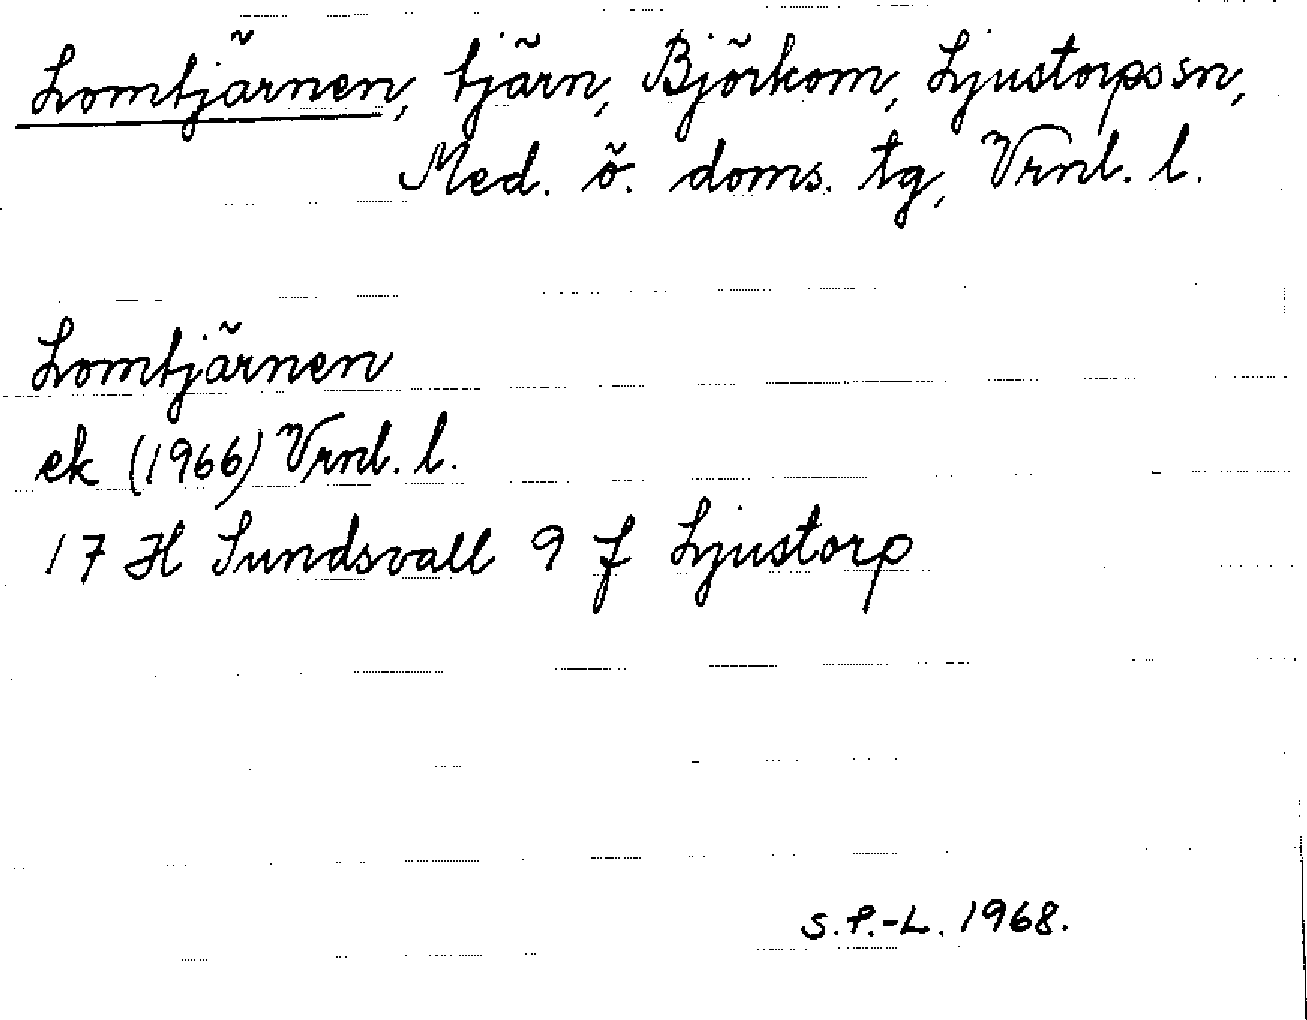 Lomtjärnen, tjärn, Björkom, Ljustorps sn,
Med. ö. doms. tg, Vrnl. l.
Lomtjärnen
ek (1966) Vrnl. l.
17 H Sundsvall 9 f Ljustorp
S.P.-L. 1968.